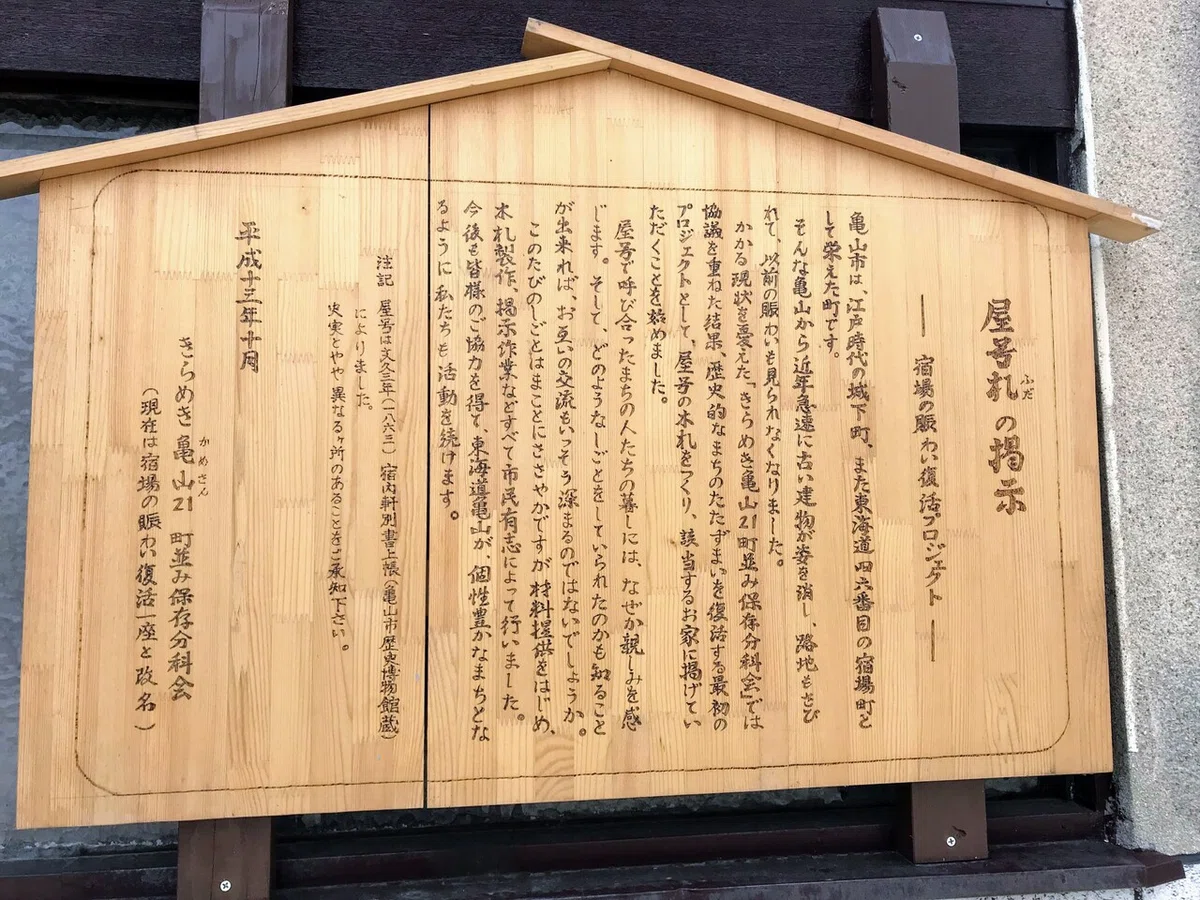 屋号札の掲示
ふだ
― 宿場の賑わい復活プロジェクト ―
亀山市は、江戸時代の城下町、また東海道四六番目の宿場町と
して栄えた町です。
そんな亀山から近年急速に古い建物が姿を消し、路地もさび
れて、以前の賑わいも見られなくなりました。
かかる現状を憂えた「きらめき亀山21町並み保存分科会」では
協議を重ねた結果、歴史的なまちのたたずまいを復活する最初の
プロジェクトとして、屋号の木札をつくり、該当するお家に掲げてい
ただくことを始めました。
屋号で呼び合ったまちの人たちの暮しには、なぜか親しみを感
じます。そして、どのようなしごとをしていられたのかも知ること
が出来れば、お互いの交流もいっそう深まるのではないでしょうか。
このたびのしごとはまことにささやかですが材料提供をはじめ、
木札製作、掲示作業などすべて市民有志によって行いました。
今後も皆様のご協力を得て、東海道亀山が、個性豊かなまちとな
るように私たちも活動を続けます。
注記 屋号は文久三年(一八六三)宿内軒別書上帳(亀山市歴史博物館蔵)
によりました。
史実とやや異なるヶ所のあることをご承知下さい。
平成十三年十月
きらめき亀山21 町並み保存分科会
かめさん
(現在は宿場の賑わい復活一座と改名)